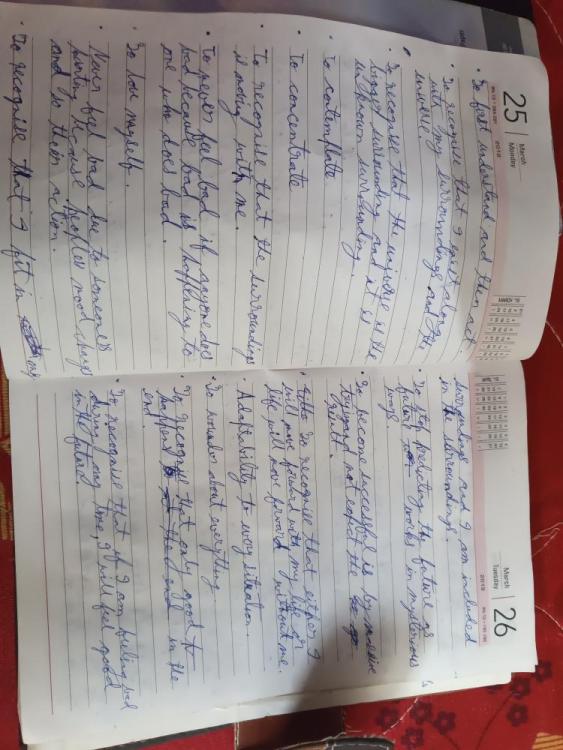 25
March
Monday
2019
• To first understand and then act.
• To recognise that I exist along
with my surroundings and the
universe.
• To recognise that the universe is the
bigger surrounding and it is
unknown surrounding.
• To contemplate
• To concentrate
• To recognise that the surroundings
is moving with me.
• To never feel bad if anyone does
bad because bad is happening to
one who does bad.
• To love myself.
• Never feel bad due to someone's
hurting because people's mood
and so their action.
• To recognise that I fit in my
26
March
Tuesday
2019
surroundings and I am included
in the surroundings.
• To stop predicting the future as
future works in mysterious
ways.
• To become successful is by
toward not expect the
result.
• To recognise that either I
will move forward with my life or
life will move forward without me.
• Adaptability to every situation.
• To wonder about everything
• To recognise that only good
happens in the
end.
• To recognise that if I am feeling bad
during any time, I will feel good
in the future.